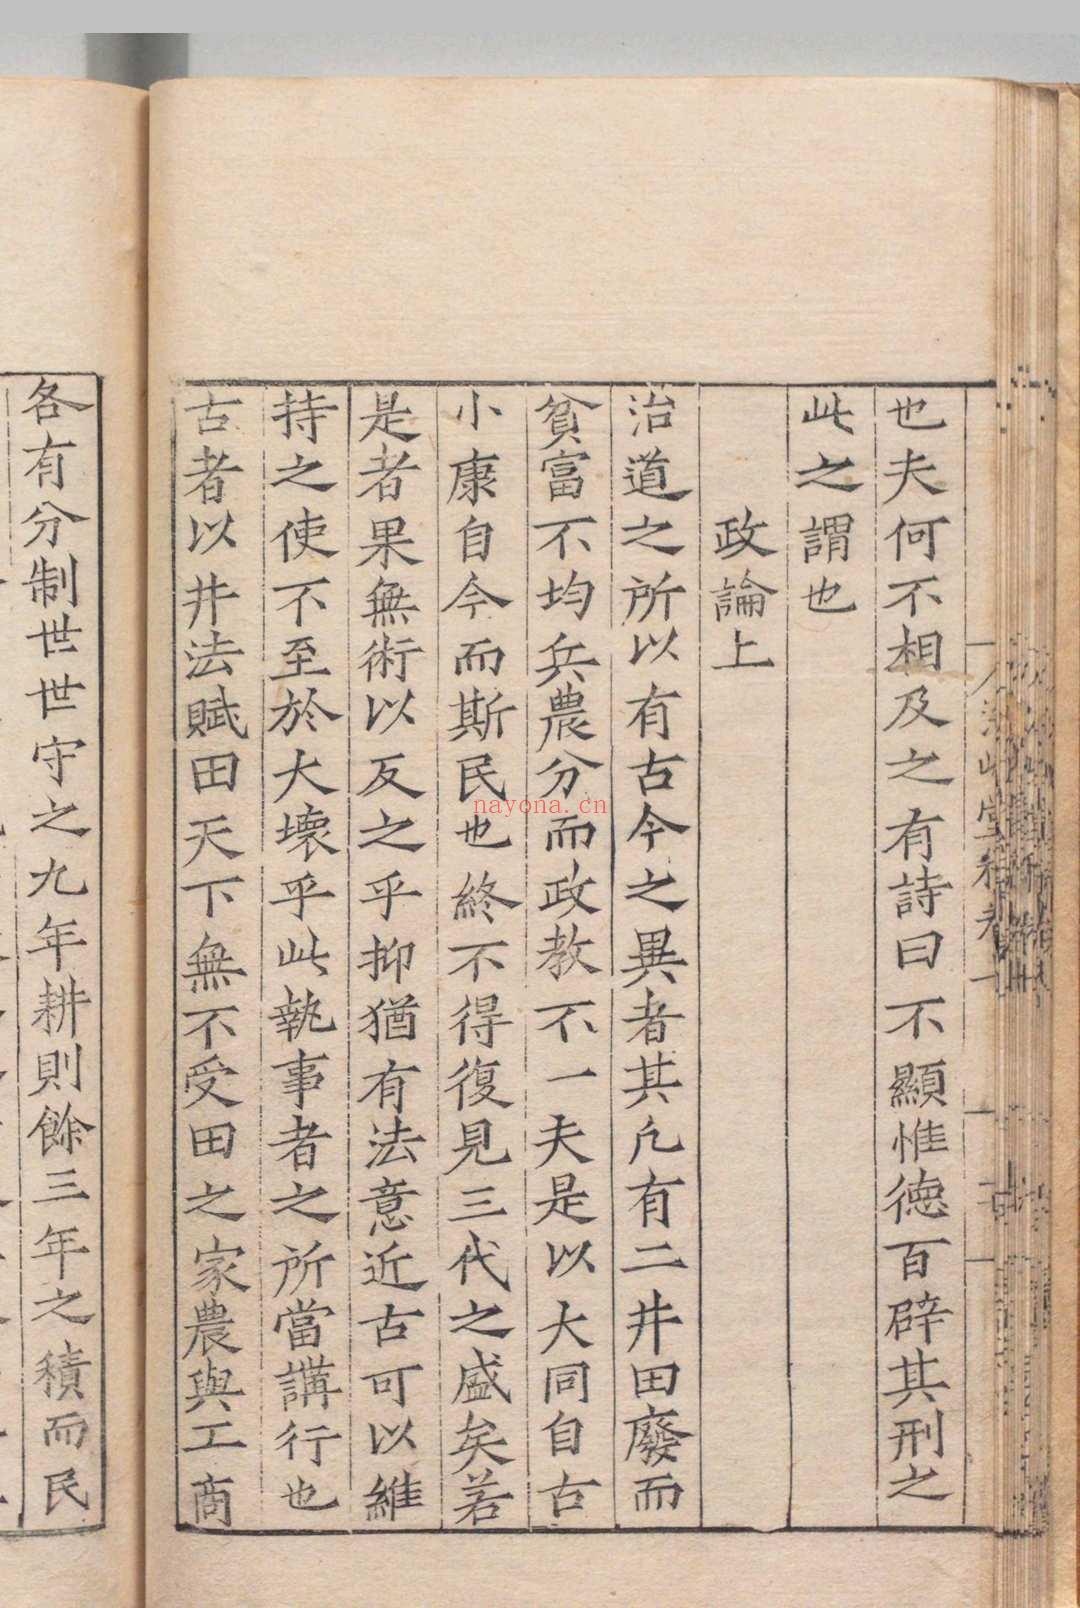 也夫何不相及之有詩曰不顯惟德百辟其刑之
此之謂也
政論上
治道之所以有古今之異者其凢有二井田廢而
貧富不均兵農分而政教不一夫是以大同自古
小康自今而斯民也終不得復見三代之盛矣若
是者果無術以反之乎抑猶有法意近古可以維
持之使不至於大壞乎此執事者之所當講行也
古者以井法賦田天下無不受田之家農與工商
各有分制世世守之九年耕則餘三年之積而民
nayona.cn